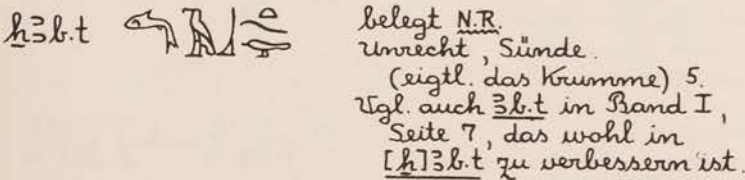 ẖꜣb.t
belegt N.R.
Unrecht, Sünde.
(eigtl. das Krumme) 5.
Vgl. auch ꜣb.t in Band I,
Seite 7, das wohl in
[ẖ]ꜣb.t zu verbessern ist.